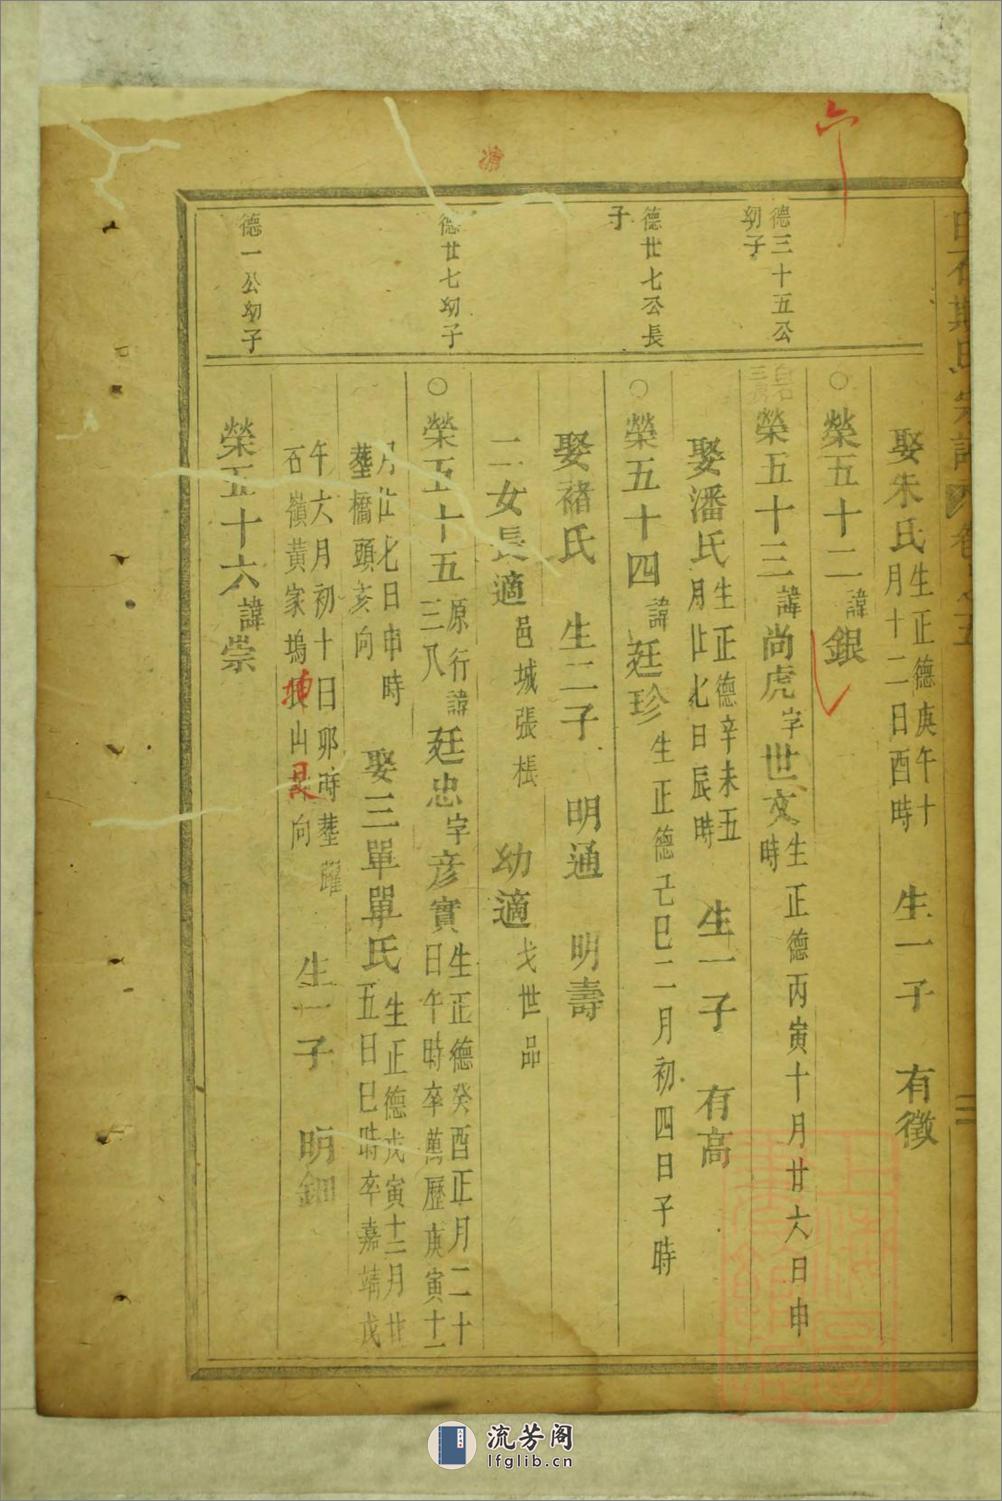 德三十五公
幼子
德廿七公長
子
德廿七幼子
德一公幼子
娶朱氏生正德庚午十
月十二日酉時 生一子 有徵
○榮五十二諱銀
榮五十三諱尚虎字世文生正德丙寅十月廿六日申
時
娶潘氏生正德辛未五
月廿七日辰時 生一子 有高
○榮五十四諱廷珍生正德己巳二月初四日子時
娶褚氏 生二子 明通 明壽
二女長適邑城張棖 幼適戈世品
○榮五十五原行
三八諱廷忠字彥實生正德癸酉正月二十
日午時卒萬歷庚寅十一
月廿七日申時
塟橋頭亥向 娶三單單氏生正德戊寅十二月廿
五日巳時卒嘉靖戊
午六月初十日卯時塟
石嶺黃家塢坤山艮向 生一子 明鈿
榮五十六諱崇
流芳阁
lfglib.cn